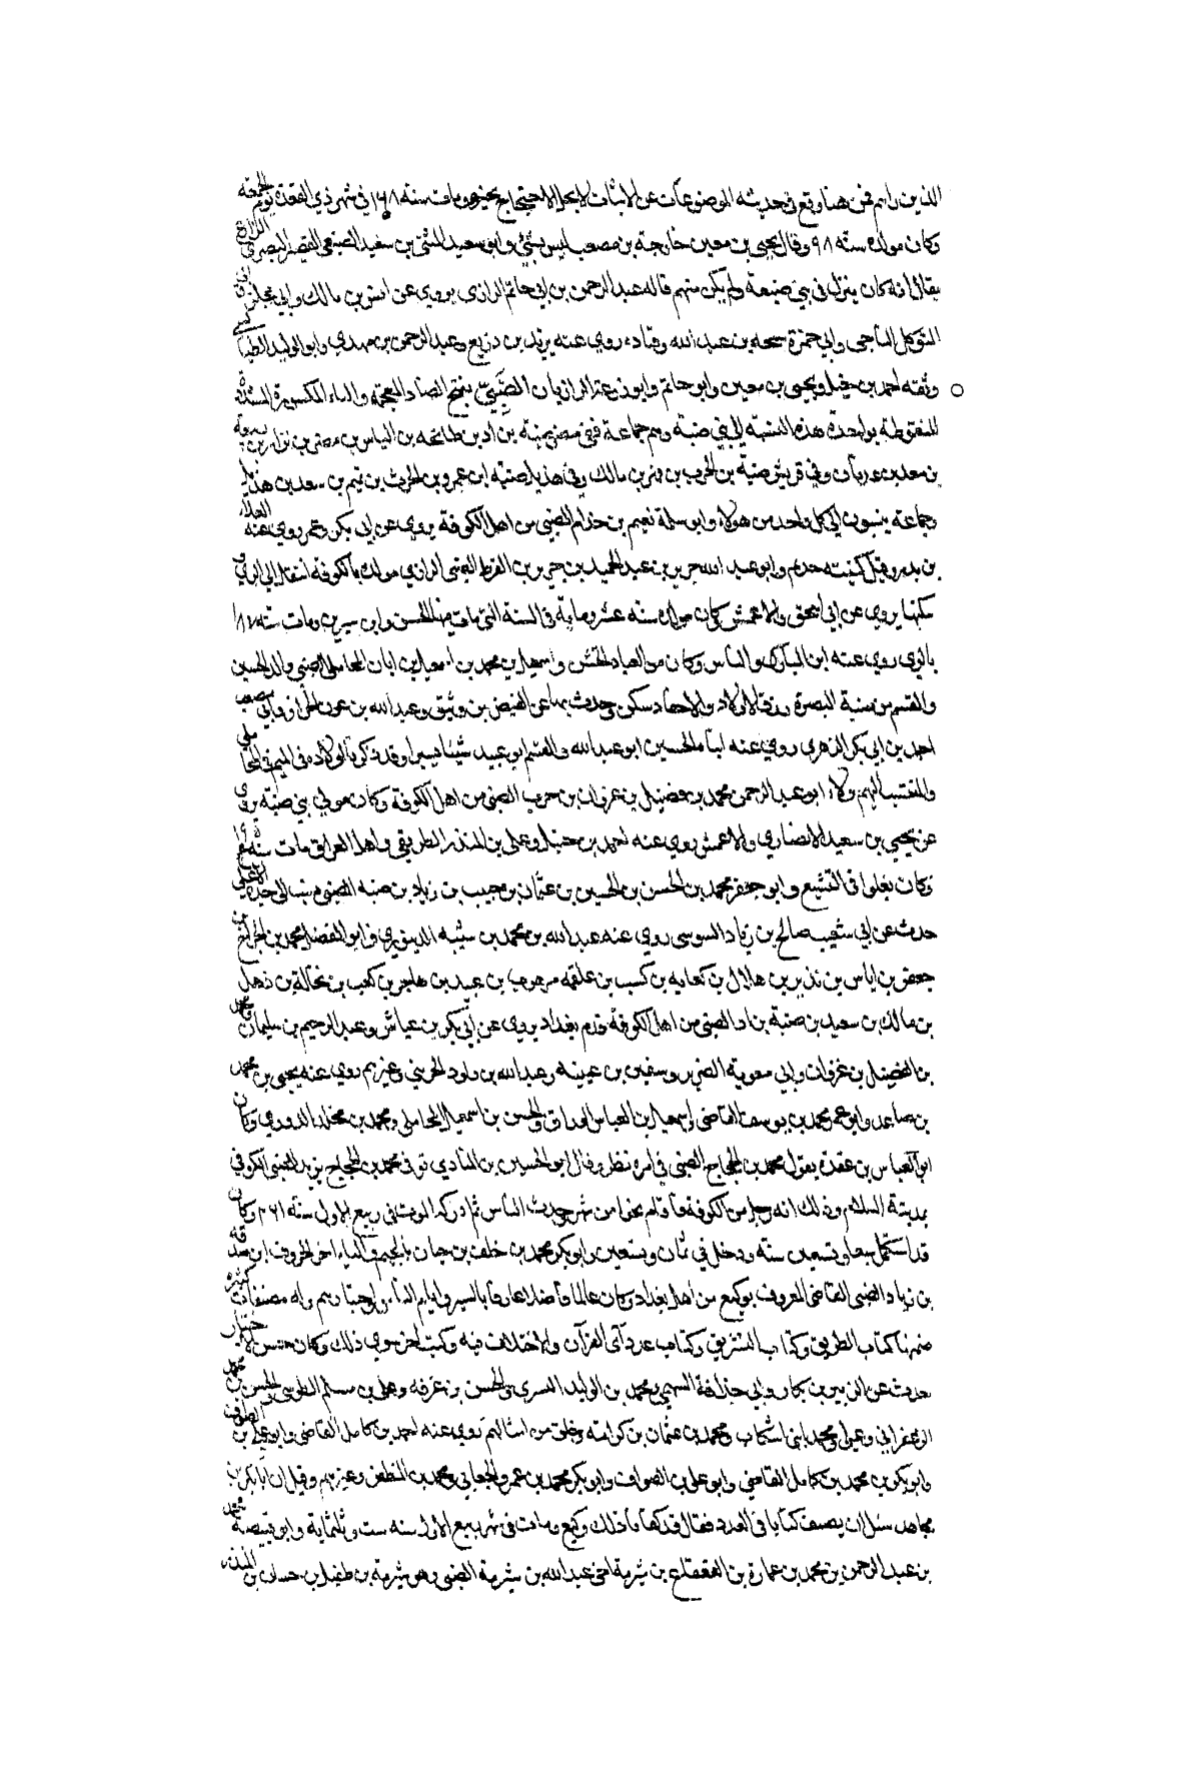 الذين راهم فمن هنا وقع في حديثه الموضوعات عن الاثبات لا يحل الاحتجاج بخبره ومات سنة ١٦٨ في شهر ذي القعدة يوم الجمعة
وكان مولده سنة ٩٨ وقال يحيى بن معين خارجة بن مصعب ليس بشئ وابو سعيد المثنى بن سعيد الضبعي القصير البصري الذارع
يقال انه كان ينزل في بني ضبيعة ولم يكن منهم قاله عبد الرحمن بن ابي حاتم الرازي يروي عن انس بن مالك وابي مجلز وابي
المتوكل الناجي وابي حمزة بن عبد الله وقتادة روى عنه يزيد بن زريع وعبد الرحمن بن مهدي وابو الوليد الطيالسي
وثقه احمد بن حنبل ويحيى بن معين وابو حاتم وابو زرعة الرازيان الضبي بفتح الضاد المعجمة والباء المكسورة المشددة
المنقوطة بواحدة هذه النسبة الى بني ضبة وهم جماعة ففي مضر ضبة بن اد بن طابخة بن الياس بن مضر بن نزار بن
بن معد بن عدنان وفي قريش ضبة بن الحرب بن فهر بن مالك وفي هذيل ضبة ابن عمرو بن الحرث بن تيم بن سعد بن هذيل
وجماعة ينسبون الى كل واحد من هولاء وابو سلمة نعيم بن حذام الضبي من اهل الكوفة يروي عن ابي بكر وعمر روى عنه العلاء
بن بدر وقيل كنيته حديم وابو عبد الله جرير بن عبد الحميد بن جرير بن القرط الضبي الرازي مولده بالكوفة انتقل الى الري
سكنها يروي عن ابي اسحق والاعمش وكان مولده سنة عشر وماية في السنة التي مات فيها الحسن وابن سيرين ومات سنة ١٨٧
بالري روى عنه ابن المبارك والناس وكان من العباد الخشن واسمعيل بن محمد بن اسمعيل بن ابان المحاملي الضبي والد الحسين
والقسم من ضبة البصرة رزق الاولاد والاحفاد سكن وحدث بها عن الفيض بن وثيق وعبد الله بن عون الخراز وابي مصعب
احمد بن ابي بكر الزهري روى عنه ابناه الحسين ابو عبد الله والقسم ابو عبيد شيئا يسيرا وقد ذكرنا اولاده في الميم في المحاملي
والمنتسب اليهم ولاء ابو عبد الرحمن محمد بن فضيل بن غزوان بن حرب الضبي من اهل الكوفة وكان مولى بني ضبة يروي
عن يحيى بن سعيد الانصاري والاعمش روى عنه احمد بن حنبل وعلي بن المنذر الطريقي واهل العراق مات سنة
وكان يغلوا في التشيع وابو جعفر محمد بن الحسن بن الحسين بن عثمان بن حبيب بن زياد بن ضبة الضبي ينسب الى جده الاعلى
حدث عن ابي شعيب صالح بن زياد السوسي روى عنه عبد الله بن محمد بن شيبه الدينوري وابو الفضل محمد بن الحجاج بن
جعفر بن اياس بن نذير بن هلال بن كعابه بن كسيب بن علقمه مرهوب بن عبيد بن هاجر بن كعب بن نجالة بن ذهل
بن مالك بن سعيد بن ضبة بن اد الضبي من اهل الكوفة قدم بغداد يروي عن ابي بكر بن عياش وعبد الرحيم بن سليمان ومحمد
بن الفضيل بن غزوان وابي معوية الضرير وسفين بن عيينة وعبد الله بن داود الخريبي وغيرهم روى عنه يحيى بن محمد
بن صاعد وابو عمر محمد بن يوسف القاضي واسمعيل بن العباس الوراق والحسين بن اسمعيل المحاملي ومحمد بن مخلد الدوري وكان
ابو العباس بن عقدة يقول محمد بن الحجاج الضبي في امره نظر وقال ابو الحسين بن المنادي توفي محمد بن الحجاج بن نذير الضبي الكوفي
بمدينة السلام وذلك انه دخل من الكوفة فاقام نحوا من شهر وحدث الناس ثم ادركه الموت في ربيع الاول سنة ٢٦١ وكان
قد استكمل سبعا وتسعين سنة ودخل في ثمان وتسعين وابو بكر محمد بن خلف بن جيان بالجيم والياء اخر الحروف ابن صدقة
بن زياد الضبي القاضي المعروف بوكيع من اهل بغداد وكان عالما فاضلا عارفا بالسير وايام الناس واخبارهم وله مصنفات كثيرة
منها كتاب الطريق وكتاب التشريق وكتاب عدد آي القرآن والاختلاف فيه وكتب اخر سوى ذلك وكان حسن الاخبار
حدث عن الزبير بن بكار وابي حذافة السهمي ومحمد بن الوليد البسري والحسن بن عرفه وعلي بن مسلم الطوسي والحسن بن محمد
الزعفراني وعلي ومحمد ابني اشكاب ومحمد بن عثمان بن كرامة وخلق من امثالهم روى عنه احمد بن كامل القاضي وابو علي بن الصواف
وابو بكر بن محمد بن كامل القاضي وابو علي بن الصواف وابو بكر محمد بن عمر والجعابي ومحمد بن المظفر وغيرهم وقيل ان ابا بكر بن
مجاهد سئل ان يصنف كتابا في العدد فقال قد كفانا ذلك وكيع ومات في شهر ربيع الاول سنه ست وثلثماية وابو قبيصة محمد
بن عبد الرحمن بن محمد بن عمارة بن القعقاع بن شبرمة اخي عبد الله بن شبرمة الضبي وهو شبرمة بن طفيل بن حسان بن المنذر